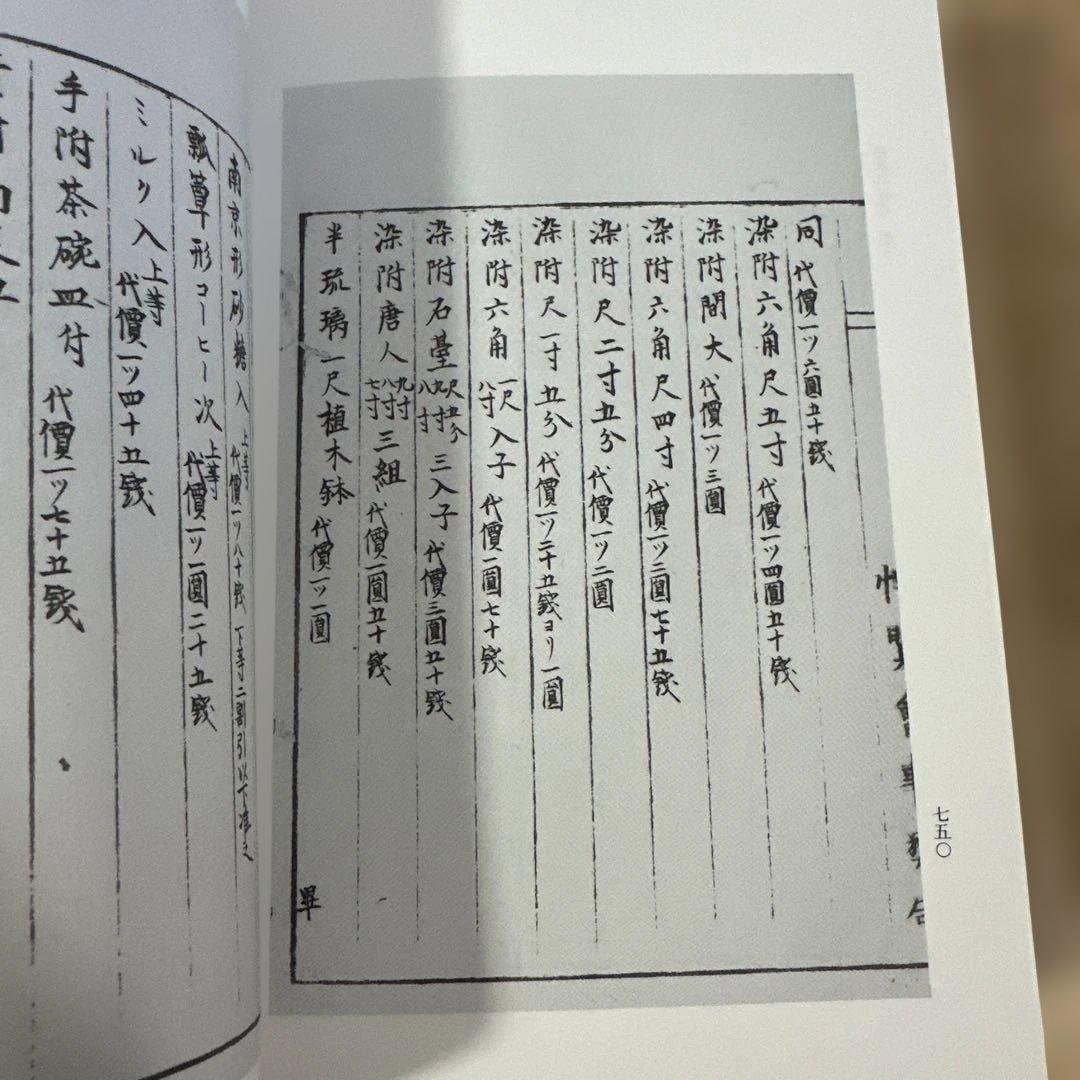 同　代價一ツ六圓五十錢
染附六角尺五寸　代價一ツ四圓五十錢
染附間大　代價一ツ三圓
染附六角尺四寸　代價一ツ三圓七十五錢
染附尺二寸五分　代價一ツ二圓
染附尺一寸五分　代價一ツ二十五錢ヨリ一圓
染附六角　一尺　八寸　入子　代價一圓七十錢
染附石臺　尺五分　九寸　八寸　三入子　代價三圓五十錢
染附唐人　九寸　八寸　七寸　三組　代價一圓五十錢
半琉璃一尺植木鉢　代價一ツ一圓
畢
七五〇
南京形砂糖入　上等　代價一ツ八十錢　下等二割引以下準之
瓢簞形コーヒー次　上等　代價一ツ一圓二十五錢
ミルク入　上等　代價一ツ四十五錢
手附茶碗皿付　代價一ツ七十五錢